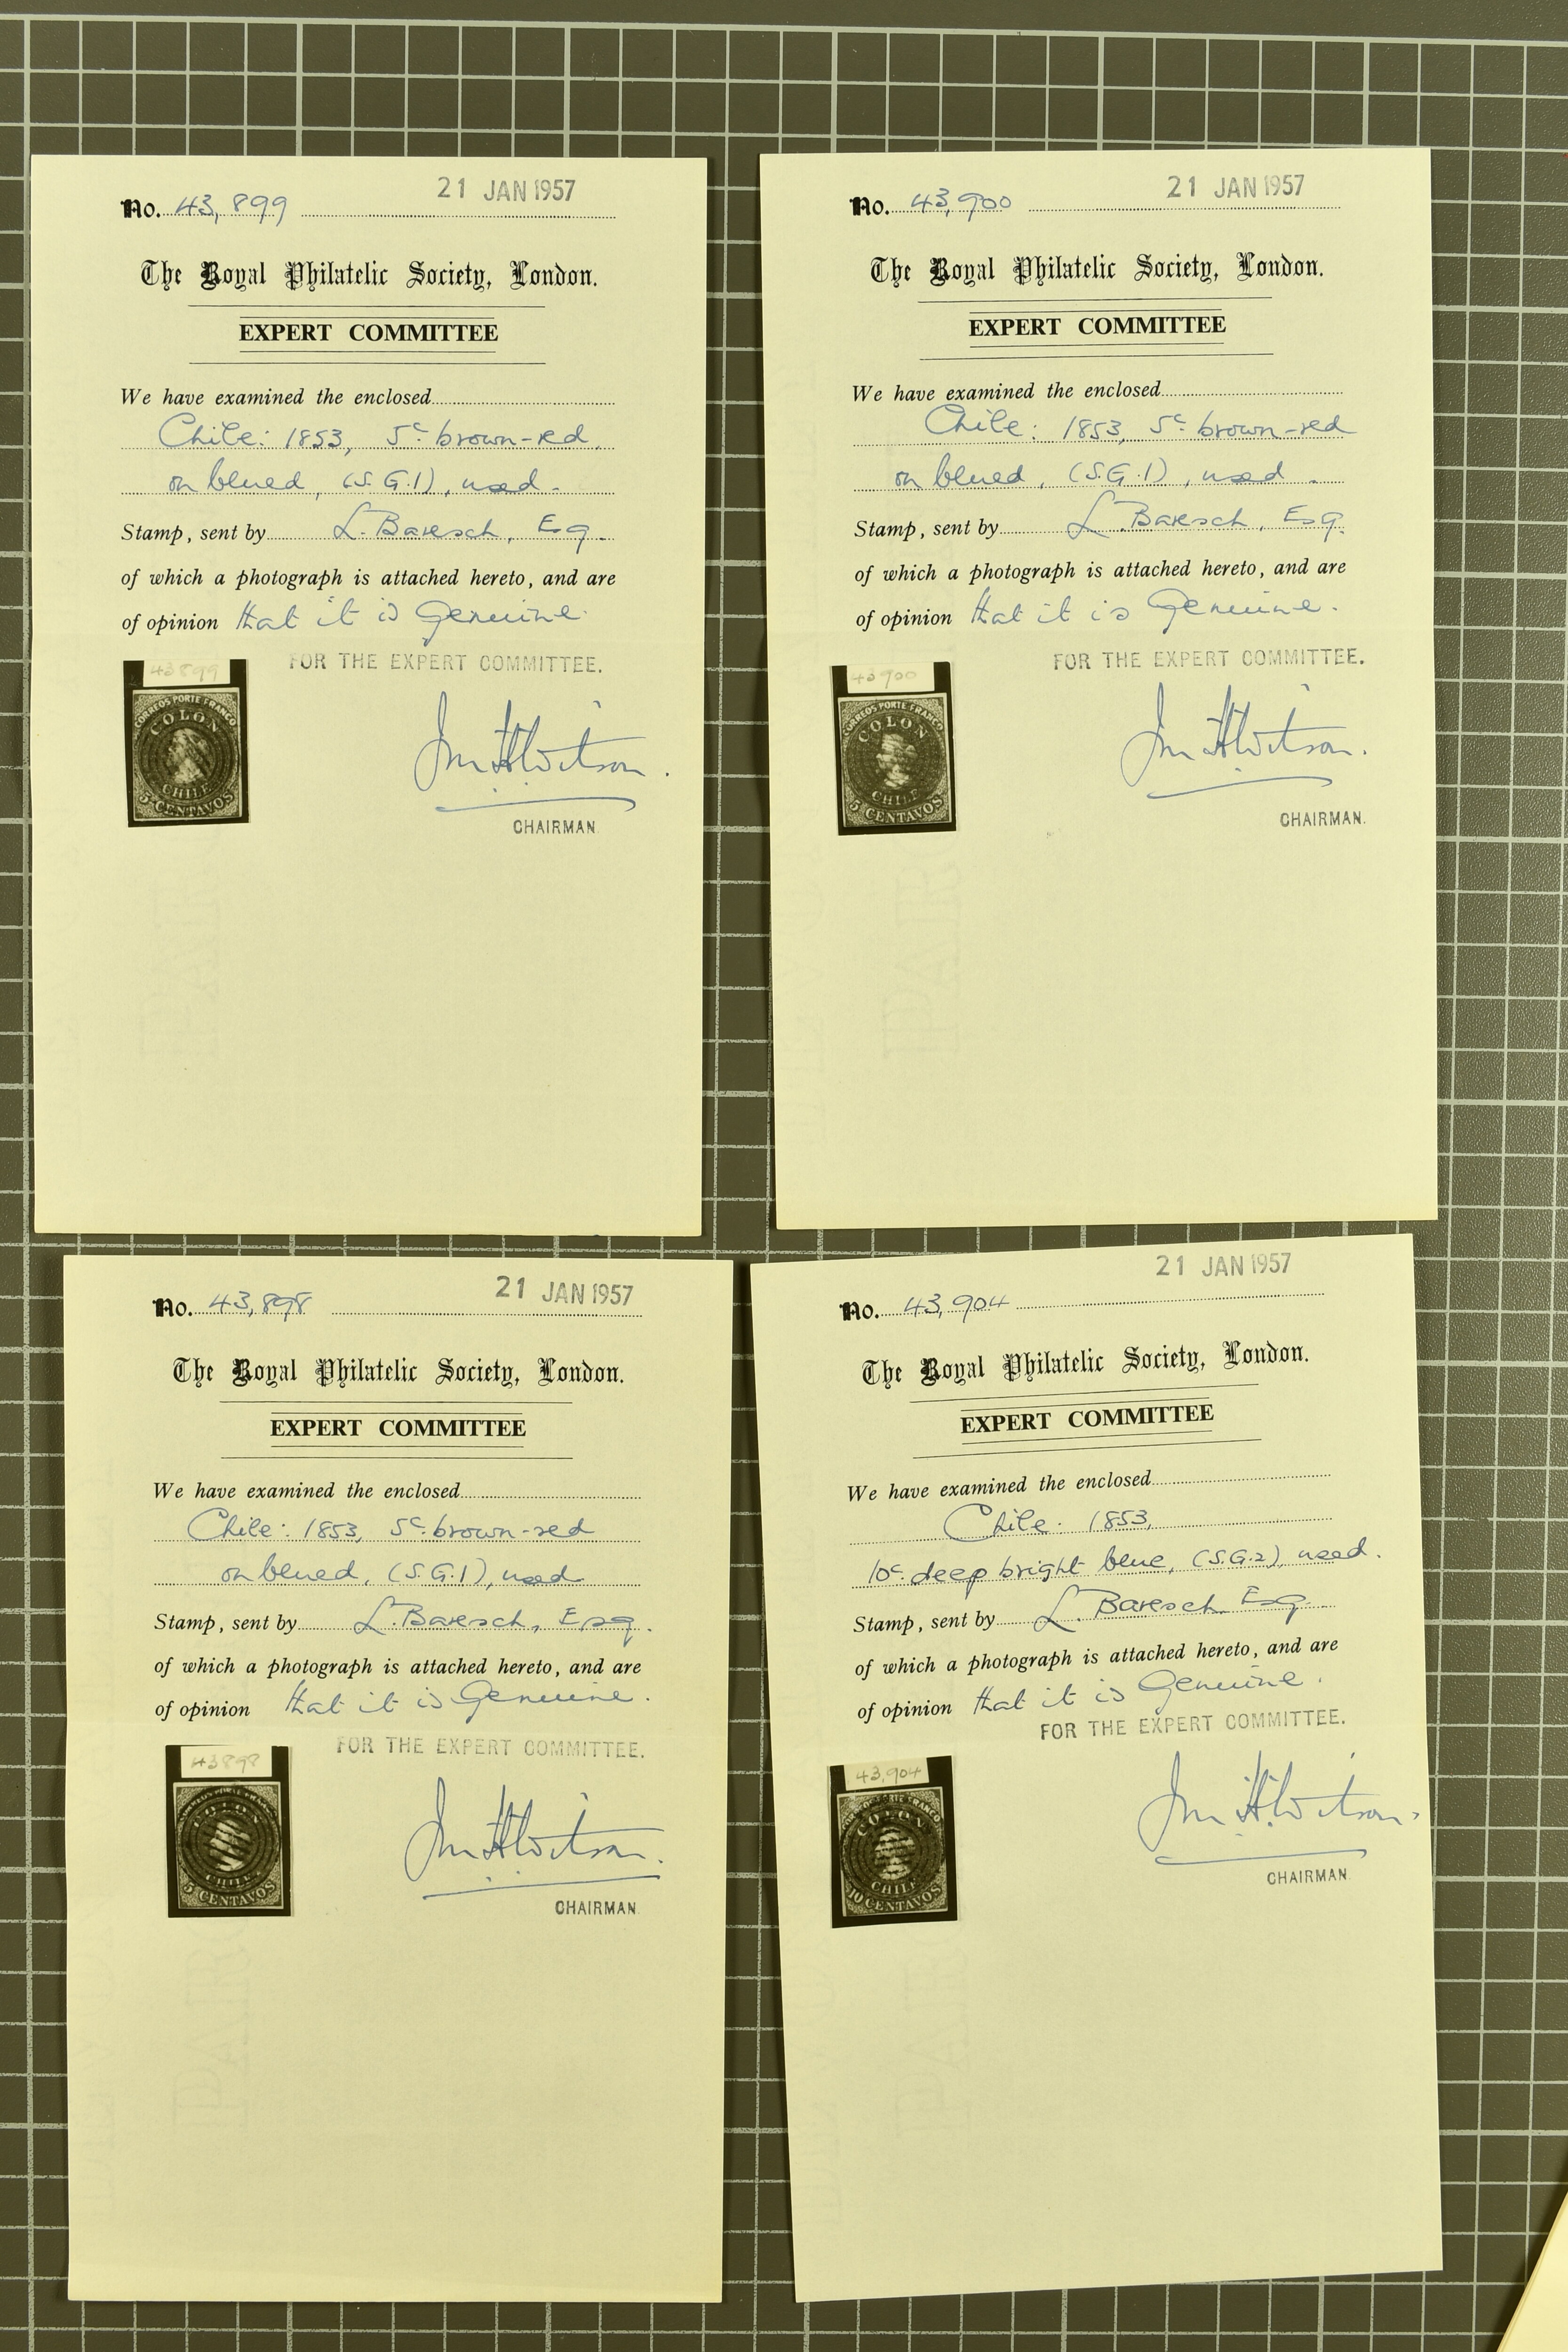 No. 43,899 21 JAN 1957
The Royal Philatelic Society, London.
EXPERT COMMITTEE
We have examined the enclosed
Chile: 1853, 5c. brown-red
on blued, (S.G.1), used.
Stamp, sent by L. Baresch, Esq.
of which a photograph is attached hereto, and are
of opinion that it is Genuine.
FOR THE EXPERT COMMITTEE.
43899
CORREOS PORTE FRANCO
COLON
CHILE
5 CENTAVOS
CHAIRMAN.
No. 43,900 21 JAN 1957
The Royal Philatelic Society, London.
EXPERT COMMITTEE
We have examined the enclosed
Chile: 1853, 5c. brown-red
on blued, (S.G.1), used.
Stamp, sent by L. Baresch, Esq.
of which a photograph is attached hereto, and are
of opinion that it is Genuine.
FOR THE EXPERT COMMITTEE.
43900
CORREOS PORTE FRANCO
COLON
CHILE
5 CENTAVOS
CHAIRMAN.
No. 43,898 21 JAN 1957
The Royal Philatelic Society, London.
EXPERT COMMITTEE
We have examined the enclosed
Chile: 1853, 5c. brown-red
on blued, (S.G.1), used
Stamp, sent by L. Baresch, Esq.
of which a photograph is attached hereto, and are
of opinion that it is Genuine.
FOR THE EXPERT COMMITTEE.
43898
CORREOS PORTE FRANCO
COLON
CHILE
5 CENTAVOS
CHAIRMAN.
No. 43,904 21 JAN 1957
The Royal Philatelic Society, London.
EXPERT COMMITTEE
We have examined the enclosed
Chile: 1853,
10c. deep bright blue, (S.G.2), used.
Stamp, sent by L. Baresch Esq
of which a photograph is attached hereto, and are
of opinion that it is Genuine.
FOR THE EXPERT COMMITTEE.
43,904
FRANCO
COLON
CHILE
10 CENTAVOS
CHAIRMAN.